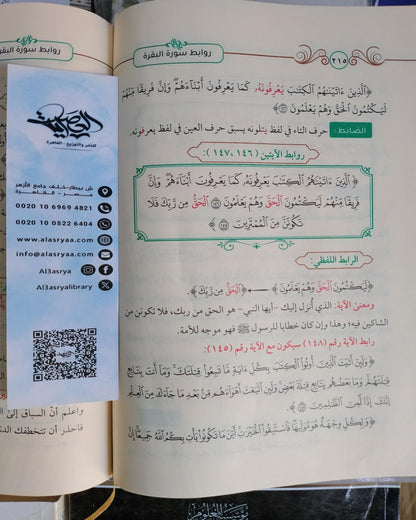 روابط سورة البقرة
٢١٥
روابط سورة البقرة
﴿الَّذِينَ ءَاتَيْنَٰهُمُ الْكِتَٰبَ يَعْرِفُونَهُۥ كَمَا يَعْرِفُونَ أَبْنَآءَهُمْ وَإِنَّ فَرِيقًا مِّنْهُمْ
لَيَكْتُمُونَ الْحَقَّ وَهُمْ يَعْلَمُونَ﴾
الضابط: حرف التاء في لفظ يتلونه يسبق حرف العين في لفظ يعرفونه.
روابط الآيتين (١٤٦، ١٤٧):
﴿الَّذِينَ ءَاتَيْنَٰهُمُ الْكِتَٰبَ يَعْرِفُونَهُۥ كَمَا يَعْرِفُونَ أَبْنَآءَهُمْ وَإِنَّ
فَرِيقًا مِّنْهُمْ لَيَكْتُمُونَ الْحَقَّ وَهُمْ يَعْلَمُونَ ١٤٦ الْحَقُّ مِن رَّبِّكَ فَلَا
تَكُونَنَّ مِنَ الْمُمْتَرِينَ ١٤٧﴾
الرابط اللفظي:
﴿لَيَكْتُمُونَ الْحَقَّ وَهُمْ يَعْلَمُونَ﴾ ﴿الْحَقُّ مِن رَّبِّكَ﴾
ومعنى الآية: الذي أُنزل إليك -أيها النبي- هو الحق من ربك، فلا تكونن من
الشاكين فيه؛ وهذا وإن كان خطابا للرسول ﷺ فهو موجه للأمة.
رابط الآية رقم (١٤٨) سيكون مع الآية رقم (١٤٥):
﴿وَلَئِنْ أَتَيْتَ الَّذِينَ أُوتُوا الْكِتَٰبَ بِكُلِّ ءَايَةٍ مَّا تَبِعُوا قِبْلَتَكَ وَمَآ أَنتَ بِتَابِعٍ
قِبْلَتَهُمْ وَمَا بَعْضُهُم بِتَابِعٍ قِبْلَةَ بَعْضٍ وَلَئِنِ اتَّبَعْتَ أَهْوَآءَهُم مِّنۢ بَعْدِ مَا جَآءَكَ مِنَ الْعِلْمِ
إِنَّكَ إِذًا لَّمِنَ الظَّٰلِمِينَ﴾
﴿وَلِكُلٍّ وِجْهَةٌ هُوَ مُوَلِّيهَا فَاسْتَبِقُوا الْخَيْرَٰتِ أَيْنَ مَا تَكُونُوا يَأْتِ بِكُمُ اللَّهُ جَمِيعًا إِنَّ
العصرية
للنشر والتوزيع - القاهرة
ش بيطار-خلف جامع الأزهر
مصر - القاهرة
0020 10 6969 4821
0020 10 0522 6404
www.alasryaa.com
info@alasryaa.com
Al3asrya
Al3asryalibrary
واعلم أنَّ السباق إلى
فاحذر أن تتخطفك الد
مؤسسة العلوم